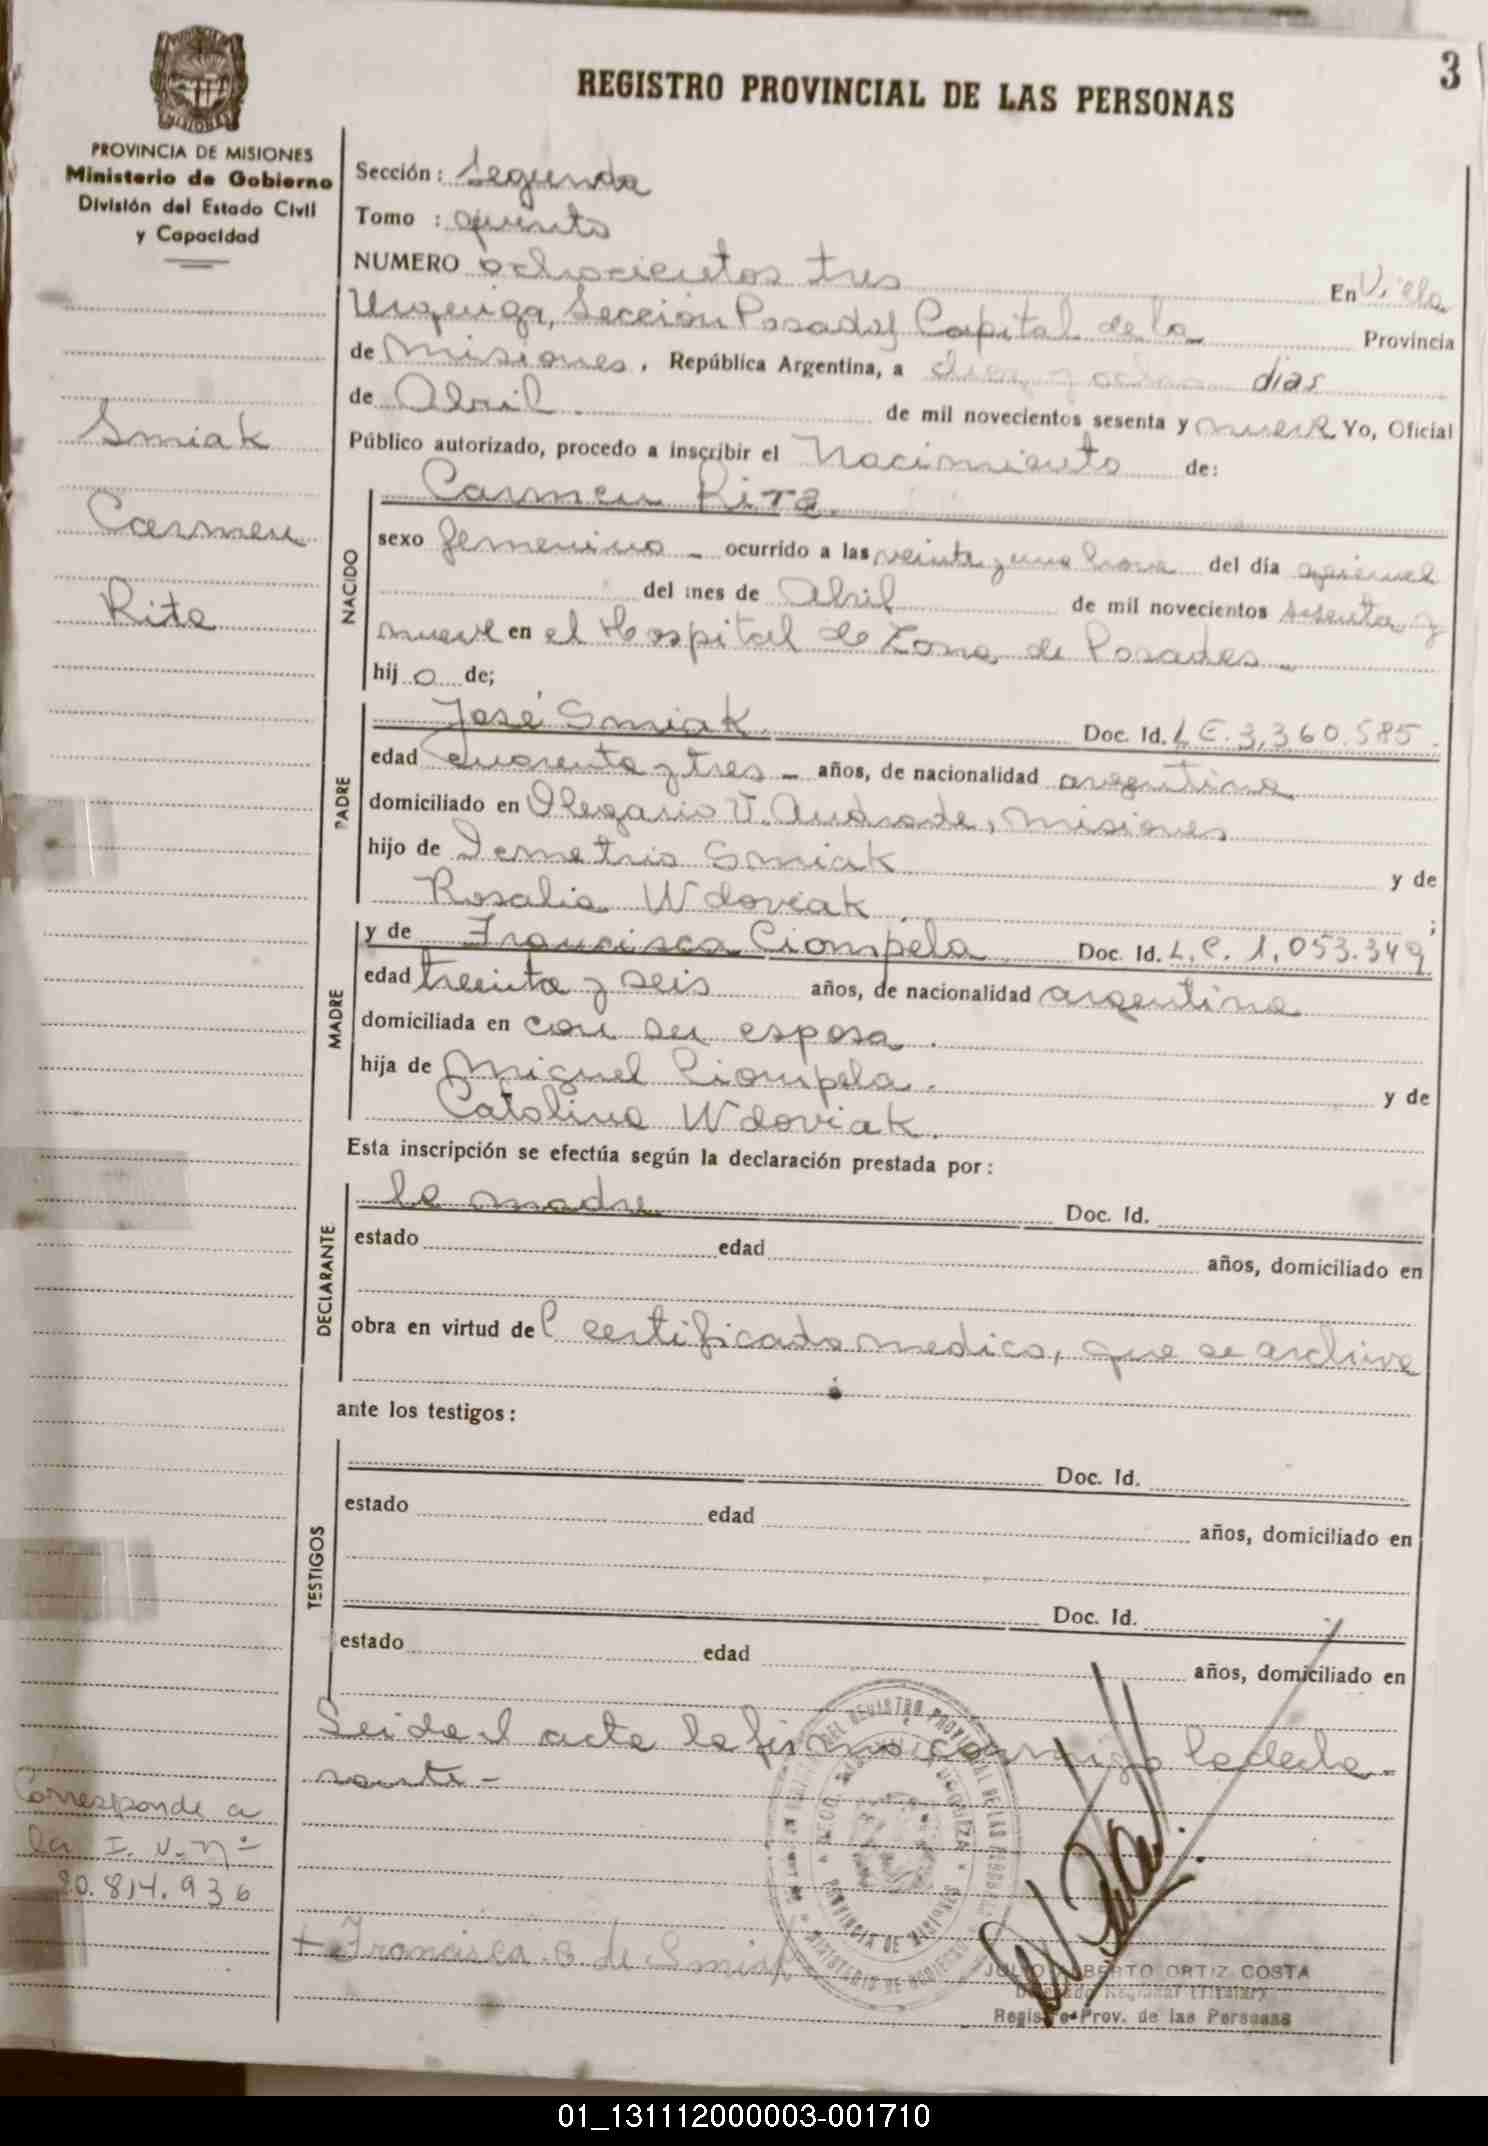 3
REGISTRO PROVINCIAL DE LAS PERSONAS
PROVINCIA DE MISIONES
Ministerio de Gobierno
División del Estado Civil
y Capacidad
Smiak
Carmen
Rita
Sección: Segunda
Tomo : quinto
NUMERO ochocientos tres En Villa
Urquiza, Sección Posadas Capital de la Provincia
de Misiones, República Argentina, a diez y ocho dias
de Abril de mil novecientos sesenta y nueve Yo, Oficial
Público autorizado, procedo a inscribir el Nacimiento de:
NACIDO
Carmen Rita
sexo femenino - ocurrido a las veinte y una hora del día quince
del mes de Abril de mil novecientos sesenta y
nueve en el Hospital de Zona de Posadas -
hij a de;
PADRE
José Smiak Doc. Id. L E. 3,360.585.
edad cuarenta y tres - años, de nacionalidad argentina
domiciliado en Olegario V. Andrade, Misiones
hijo de Demetrio Smiak y de
Rosalia Wdoviak. ;
MADRE
y de Francisca Ciompela Doc. Id. L.C. 1,053.349
edad treinta y seis años, de nacionalidad argentina
domiciliada en con su esposo.
hija de Miguel Ciompela. y de
Catalina Wdoviak.
Esta inscripción se efectúa según la declaración prestada por:
DECLARANTE
la madre Doc. Id.
estado edad años, domiciliado en
obra en virtud del certificado medico, que se archiva
ante los testigos:
TESTIGOS
Doc. Id.
estado edad años, domiciliado en
Doc. Id.
estado edad años, domiciliado en
Leida el acta la firma conmigo la decla-
rante -
Corresponde a
la I. V. nº
20.814.936
+ Francisca C de Smiak
PROVINCIA DE MISIONES
JULIO ALBERTO ORTIZ COSTA
Delegado Regional (Titular)
Registro Prov. de las Personas
01_131112000003-001710